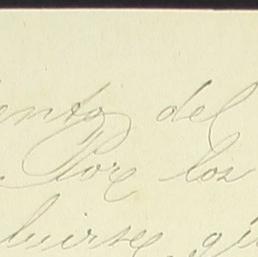 ento del
Por los
buirse